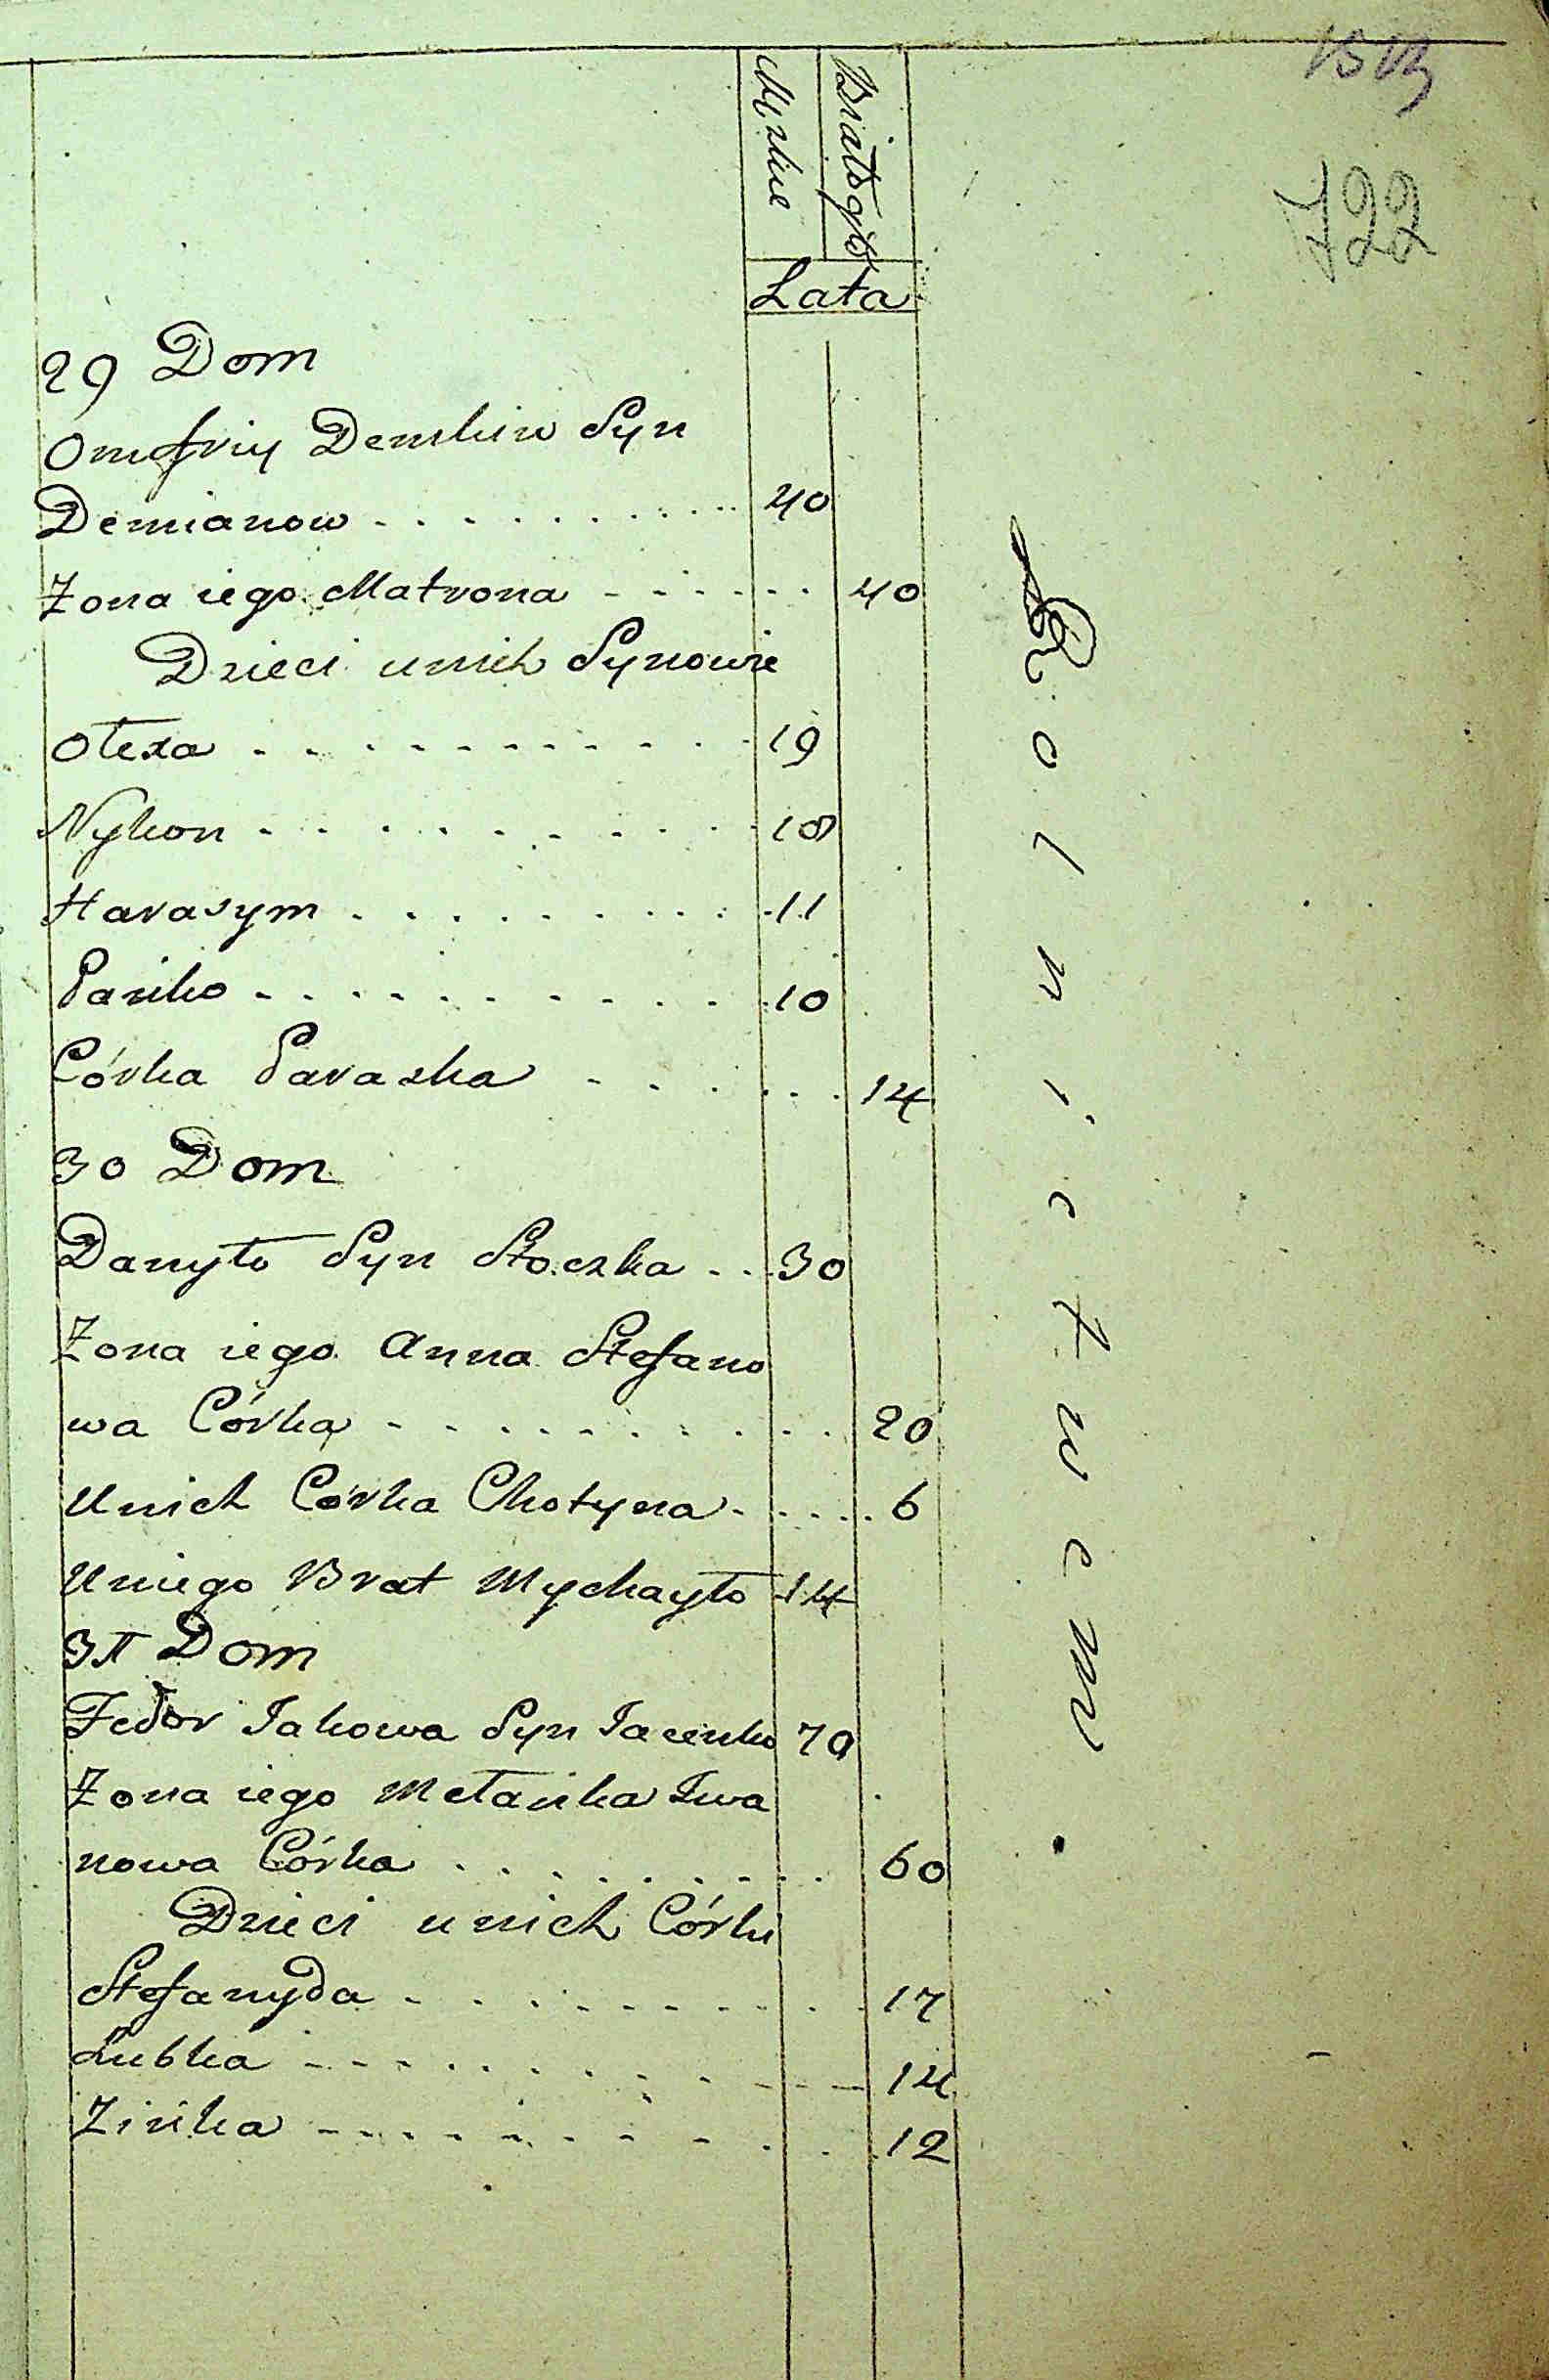 722
Męzkie
Białogło
Lata
29 Dom
Onofriy Demkiw Syn
Demianow 40
Zona iego Matrona 40
Dzieci unich Synowie
Ołexa 19
Nykon 18
Harasym 11
Pańko 10
Córka Paraska 14
30 Dom
Danyło Syn Stoczka 30
Zona iego Anna Stefano
wa Córka 20
Unich Córka Chotyna 6
Uniego Brat Mychayło 14
31 Dom
Fedor Jakowa Syn Jacenko 70
Zona iego Mełańka Iwa
nowa Córka 60
Dzieci unich Córki
Stefanyda 17
Lubka 14
Zińka 12
Rolnictwem